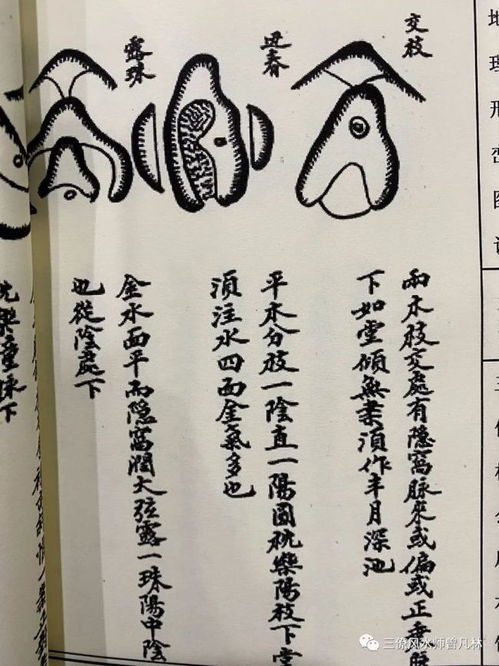 地理形
交枝
迎春
露珠
兩木枝交處有隐窝脉來或偏或正
下如堂傾無案須作半月深池
平木分枝一陰直一陽圓枕樂陽枝下堂
須注水四面金氣多也
金水面平而隐窩濶大弦露一珠陽中陰
也從陰處下
三僚风水师曾凡林